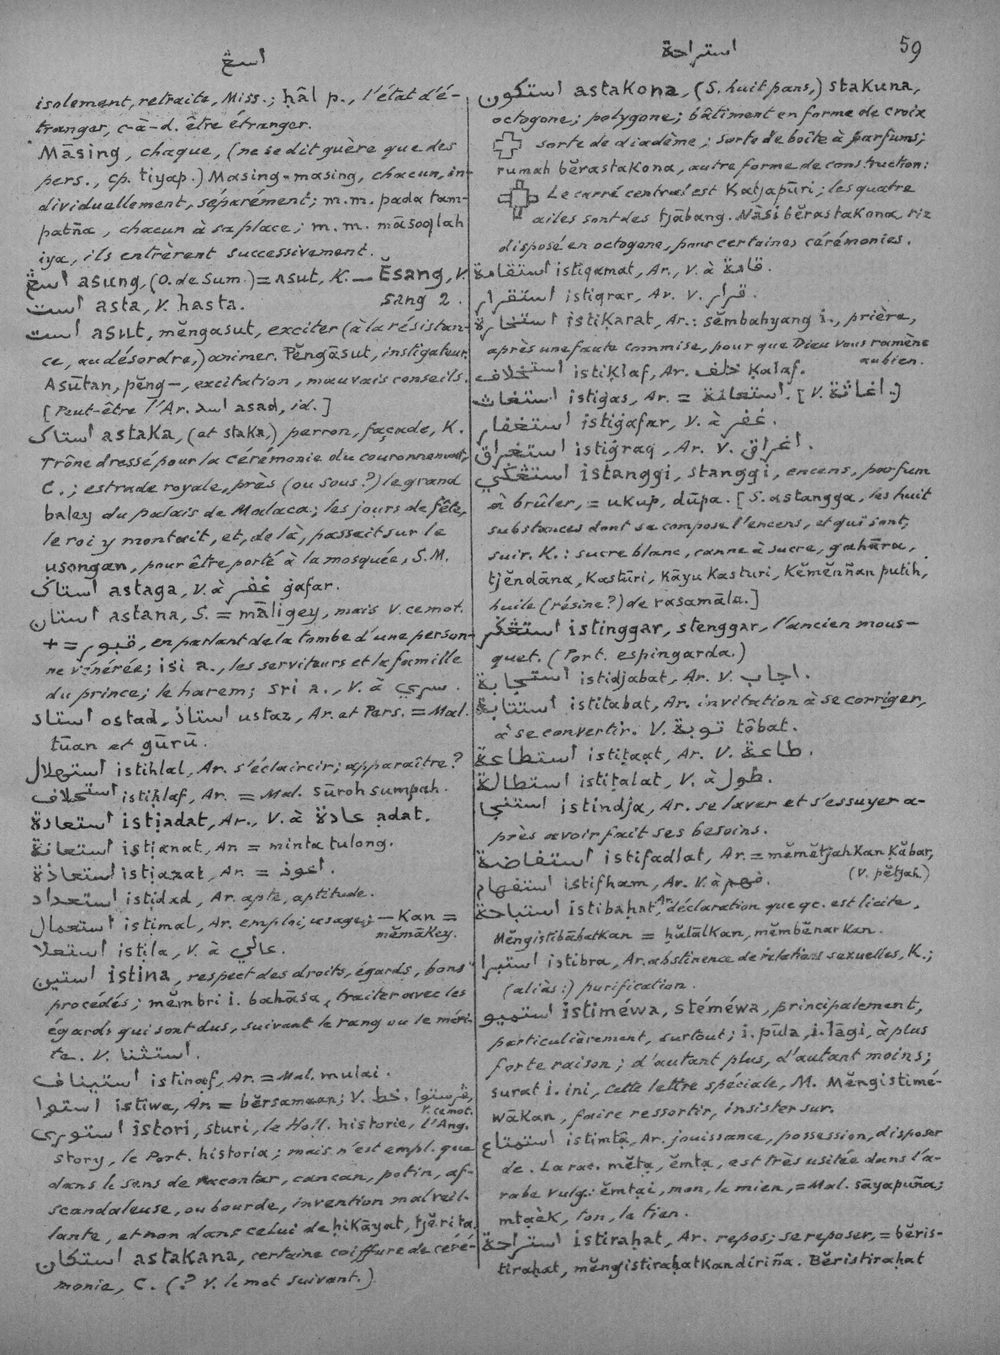 اسڠ
استراحة
59
isolement, retraite, Miss.; ḥâl p., l'état d'é-
tranger, c-à-d. être étranger.
Māsing, chaque, (ne se dit guère que des
pers., cp. tiyap.) Masing-masing, chacun, in-
dividuellement, séparément; m.m. pada tam-
patña, chacun à sa place; m.m. māsoqlah
iya, ils entrèrent successivement.
اسڠ asung, (O. de Sum.) = asut, K. — Ĕsang, V.
است asta, V. hasta. sang 2.
است asut, mĕngasut, exciter (à la résistan-
ce, au désordre,) animer. Pĕngāsut, instigateur.
Asūtan, pĕng—, excitation, mauvais conseils.
[Peut-être l'Ar. اسد asad, id.]
استاک astaka, (et staka,) perron, façade, K.
Trône dressé pour la cérémonie du couronnement,
C.; estrade royale, près (ou sous?) le grand
baley du palais de Malaca; les jours de fête,
le roi y montait, et, de là, passait sur le
usongan, pour être porté à la mosquée, S.M.
استاک astaga, V. à غفر ġafar.
استان astana, S. = māligey, mais V. ce mot.
+ = قبور, en parlant de la tombe d'une person-
ne vénérée; isi a., les serviteurs et la famille
du prince; le harem; sri a., V. à سري.
استاد ostad, استاذ ustaz, Ar. et Pers. = Mal.
tūan et gūrū.
استهلال istihlal, Ar. s'éclaircir; apparaître?
استحلاف istiḥlaf, Ar. = Mal. sūroh sumpah.
استعادة istịadat, Ar., V. à عادة ạdat.
استعانة istịanat, Ar. = minta tulong.
استعاذة istịazat, Ar. = أعوذ.
استعداد istịdad, Ar. apte, aptitude.
استعمال istịmal, Ar. emploi, usage; — Kan =
mĕmākey.
استعلا istịla, V. à عالي.
استين istina, respect des droits, égards, bons
procédés; mĕmbri i. bahāsa, traiter avec les
égards qui sont dus, suivant le rang ou le méri-
te. V. استثنا.
استيناف istinaf, Ar. = Mal. mulai.
استوا istiwa, Ar. = bĕrsamaan; V. خط.
V. ce mot.
استوري istori, sturi, le Holl. historie, l'Ang.
story, le Port. historia; mais n'est empl. que
dans le sens de racontar, cancan, potin, af-
scandaleuse, ou bourde, invention malveil-
lante, et non dans celui de ḥikāyat, tjĕrita.
استکان astakana, certaine coiffure de céré-
monie, C. (? V. le mot suivant.)
استکون astakona, (S. huit pans,) stakuna,
octogone; polygone; bâtiment en forme de croix
sorte de diadème; sorte de boîte à parfums;
rumah bĕrastakona, autre forme de construction:
Le carré central est Katjapūri; les quatre
ailes sont des tjābang. Nāsi bĕrastakona, riz
disposé en octogone, pour certaines cérémonies.
استقامة istiqamat, Ar., V. à قامة.
استقرار istiqrar, Ar. V. قرار.
استخارة istiḳarat, Ar.: sĕmbahyang i., prière,
après une faute commise, pour que Dieu vous ramène
au bien.
استخلاف istiḳlaf, Ar. خلف ḳalaf.
استغاث istiġas, Ar. = استعانة. [V. اغاثة.]
استغفار istiġafar, V. à غفر.
استغراق istiġraq, Ar. V. اغراق.
استڠگي istanggi, stanggi, encens, parfum
à brûler, = ukup, dūpa. [S. astangga, les huit
substances dont se compose l'encens, et qui sont,
suiv. K.: sucre blanc, canne à sucre, gahāra,
tjĕndāna, Kastūri, Kāyu Kasturi, Kĕmĕnñan putih,
huile (résine?) de rasamāla.]
استڠگر istinggar, stenggar, l'ancien mous-
quet. (Port. espingarda.)
استجابة istidjabat, Ar. V. اجاب.
استتابة istitabat, Ar. invitation à se corriger,
à se convertir. V. توبة tôbat.
استطاعة istiṭaạt, Ar. V. طاعة.
استطالة istiṭalat, V. à طول.
استنجا istindja, Ar. se laver et s'essuyer a-
près avoir fait ses besoins.
استفاضة istifadlat, Ar. = mĕmĕtjahkan ḳābar,
(V. pĕtjah.)
استفهام istifham, Ar. V. à فهم.
استباحة istibaḥat, Ar. déclaration que qc. est licite.
Mĕngistibāḥatkan = ḥālālkan, mĕmbĕnarkan.
استبرا istibra, Ar. abstinence de relations sexuelles, K.;
(aliàs:) purification.
استميو istiméwa, stéméwa, principalement,
particulièrement, surtout; i. pūla, i. lāgi, à plus
forte raison; d'autant plus, d'autant moins;
surat i. ini, cette lettre spéciale, M. Mĕngistimé-
wākan, faire ressortir, insister sur.
استمتاع istimtạ, Ar. jouissance, possession, disposer
de. La rac. mĕtạ, ĕmtạ, est très usitée dans l'a-
rabe vulg.: ĕmtại, mon, le mien, = Mal. sāyapuña;
mtạèk, ton, le tien.
استراحة istiraḥat, Ar. repos; se reposer, = bĕris-
tiraḥat, mĕngistiraḥatkan diriña. Bĕristiraḥat